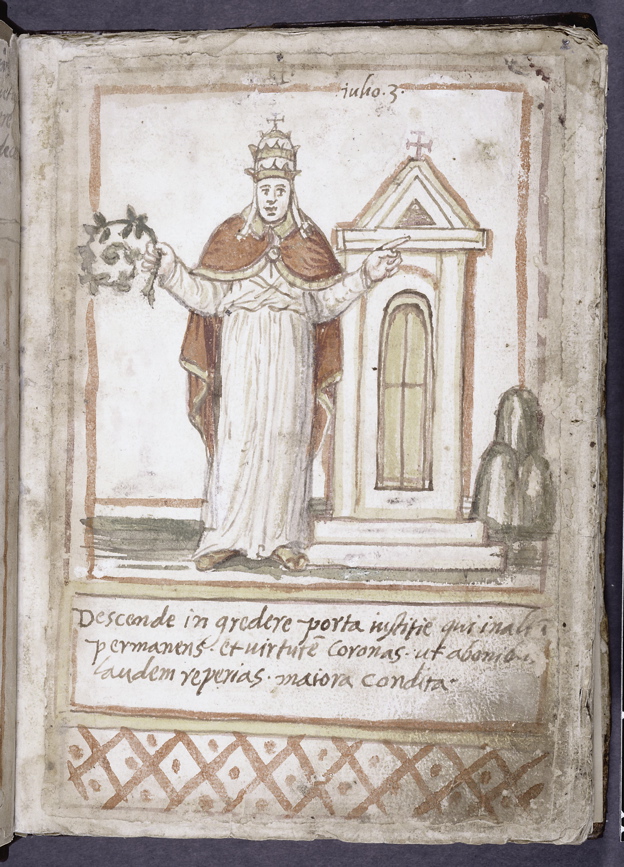 iulio. 3.
Descende in gredere porta iustitie qui inalt
permanens. et uirtutē coronas. ut abomi
laudem reperias. maiora condita.